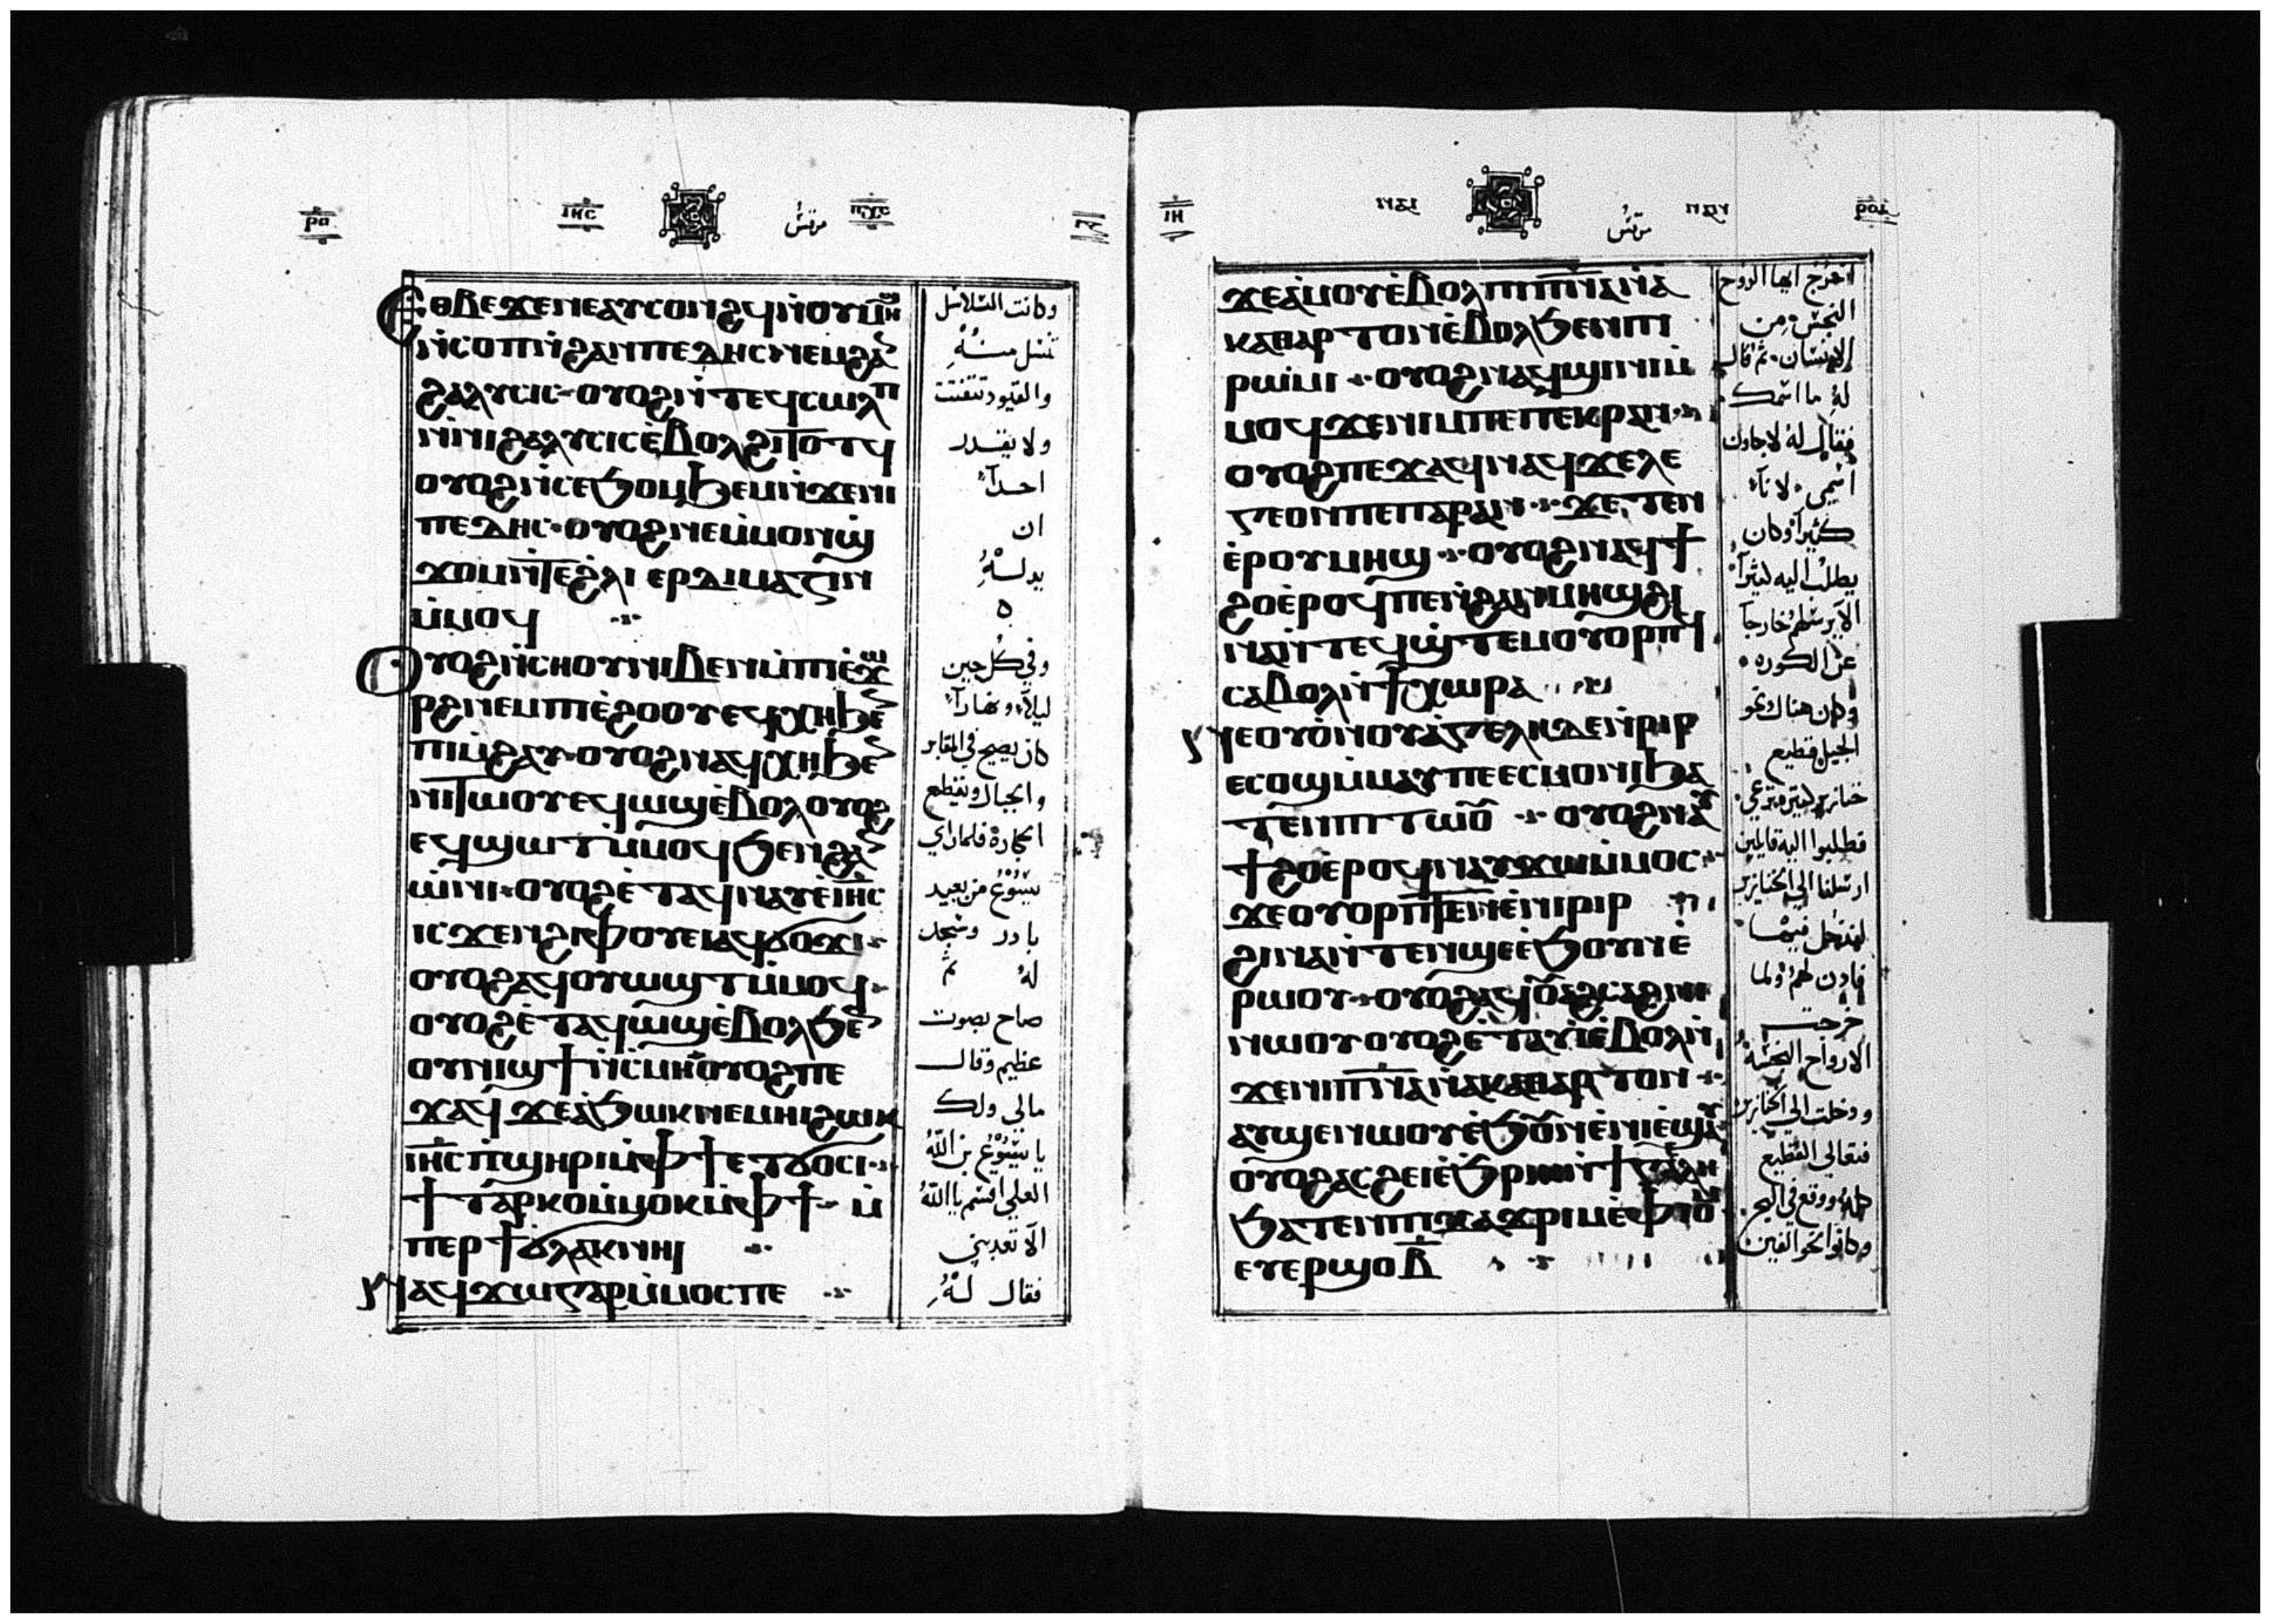 ⲓⲏⲥ
مرقس
ⲉⲑⲃⲉ ϫⲉ ⲛⲉⲁⲩⲥⲟⲛϩϥ ⲛ̀ⲟⲩⲙⲏϣ
ⲛ̀ⲥⲟⲡ ⲛ̀ϩⲁⲛⲡⲉⲇⲏⲥ ⲛⲉⲙ ϩⲁⲛ
ϩⲁⲗⲩⲥⲓⲥ ⲟⲩⲟϩ ⲛ̀ⲧⲉϥⲥⲱⲗⲡ
ⲛ̀ⲛⲓϩⲁⲗⲩⲥⲓⲥ ⲉ̀ⲃⲟⲗ ϩⲓⲧⲟⲧϥ
ⲟⲩⲟϩ ⲛ̀ⲥⲉϧⲟⲙϧⲉⲙ ⲛ̀ϫⲉ ⲛⲓ
ⲡⲉⲇⲏⲥ ⲟⲩⲟϩ ⲛⲉ ⲙ̀ⲙⲟⲛ ϣ̀
ϫⲟⲙ ⲛ̀ⲧⲉ ϩ̀ⲗⲓ ⲉⲣⲇⲓⲙⲁⲍⲓⲛ
ⲙ̀ⲙⲟϥ
ⲟⲩⲟϩ ⲛ̀ⲥⲏⲟⲩ ⲛⲓⲃⲉⲛ ⲙ̀ⲡⲓⲉ̀ϫⲱ
ⲣϩ ⲛⲉⲙ ⲡⲓⲉ̀ϩⲟⲟⲩ ⲉϥⲭⲏ ϧⲉⲛ
ⲡⲓⲙ̀ϩⲁⲩ ⲟⲩⲟϩ ⲛⲁϥⲭⲏ ϧⲉⲛ
ⲛⲓⲧⲱⲟⲩ ⲉϥⲱϣ ⲉ̀ⲃⲟⲗ ⲟⲩⲟϩ
ⲉϥϣⲱⲧ ⲙ̀ⲙⲟϥ ϧⲉⲛ ϩⲁⲛ
ⲱ̀ⲛⲓ ⲟⲩⲟϩ ⲉ̀ⲧⲁϥⲛⲁⲩ ⲉ̀ⲓⲏⲥ
ⲓⲥϫⲉⲛ ϩⲓⲫⲟⲩⲉⲓ ⲁϥϭⲟϫⲓ
ⲟⲩⲟϩ ⲁϥⲟⲩⲱϣⲧ ⲙ̀ⲙⲟϥ
ⲟⲩⲟϩ ⲉ̀ⲧⲁϥⲱϣ ⲉ̀ⲃⲟⲗ ϧⲉⲛ
ⲟⲩⲛⲓϣϯ ⲛ̀ⲥ̀ⲙⲏ ⲟⲩⲟϩ ⲡⲉ
ϫⲁϥ ϫⲉ ⲁ̀ϧⲱⲕ ⲛⲉⲙⲏⲓ ϩⲱⲕ
ⲓⲏⲥ ⲡ̀ϣⲏⲣⲓ ⲙ̀ⲫϯ ⲉⲧϭⲟⲥⲓ
ϯⲧⲁⲣⲕⲟ ⲙ̀ⲙⲟⲕ ⲙ̀ⲫϯ ⲙ̀
ⲡⲉⲣϯϭⲗⲁⲕ ⲛⲏⲓ
ⲛⲁϥϫⲱ ⲅⲁⲣ ⲙ̀ⲙⲟⲥ ⲡⲉ
وكانت السلاسل
والقيود تتفتت
ولا يقدر
احداً
ان
وفي كل حين
ليلاً ونهاراً
كان يصيح في المقابر
والجبال ويقطع
الحجارة فلما راي
يسوع من بعيد
بادر وسجد
له ثم
صاح بصوت
عظيم وقال
مالي ولك
يا يسوع بن الله
العلي اقسم بالله
الا تعذبني
فقال له
ⲓⲏ
مرقس
ϫⲉ ⲁ̀ⲙⲟⲩ ⲉ̀ⲃⲟⲗ ⲡⲓⲡⲛⲁ ⲛ̀ⲁ
ⲕⲁⲑⲁⲣⲧⲟⲛ ⲉ̀ⲃⲟⲗ ϧⲉⲛ ⲡⲓ
ⲣⲱⲙⲓ ⲟⲩⲟϩ ⲛⲁϥϣⲓⲛⲓ ⲙ̀
ⲙⲟϥ ϫⲉ ⲛⲓⲙ ⲡⲉ ⲡⲉⲕⲣⲁⲛ
ⲟⲩⲟϩ ⲡⲉϫⲁϥ ⲛⲁϥ ϫⲉ ⲗⲉ
ⲅⲉⲟⲛ ⲡⲉ ⲡⲁⲣⲁⲛ ϫⲉ ⲧⲉⲛ
ⲉⲣ ⲟⲩⲙⲏϣ ⲟⲩⲟϩ ⲛⲁϥϯ
ϩⲟ ⲉ̀ⲣⲟϥ ⲡⲉ ⲛ̀ϩⲁⲛⲙⲏϣ ϩⲓ
ⲛⲁ ⲛ̀ⲧⲉϥϣ̀ⲧⲉⲙⲟⲩⲟⲣⲡϥ
ⲥⲁⲃⲟⲗ ⲛ̀ϯⲭⲱⲣⲁ
ⲛⲉ ⲟⲩⲟⲛ ⲟⲩⲁ̀ⲅⲉⲗⲏ ⲇⲉ ⲛ̀ⲣⲓⲣ
ⲉⲥⲟϣ ⲙ̀ⲙⲁⲩ ⲡⲉ ⲉⲥⲙⲟⲛⲓ ϧⲁ
ⲧⲉⲛ ⲡⲓⲧⲱⲟⲩ ⲟⲩⲟϩ ⲛⲁⲩ
ϯϩⲟ ⲉ̀ⲣⲟϥ ⲛⲁⲩϫⲱ ⲙ̀ⲙⲟⲥ
ϫⲉ ⲟⲩⲟⲣⲡⲧⲉⲛ ⲉ̀ⲛⲓⲣⲓⲣ
ϩⲓⲛⲁ ⲛ̀ⲧⲉⲛϣⲉ ⲉ̀ϧⲟⲩⲛ ⲉ̀
ⲣⲱⲟⲩ ⲟⲩⲟϩ ⲁϥⲟⲩⲁϩⲥⲁϩⲛⲓ
ⲛⲱⲟⲩ ⲟⲩⲟϩ ⲉ̀ⲧⲁⲩⲓ̀ ⲉ̀ⲃⲟⲗ ⲛ̀
ϫⲉ ⲛⲓⲡⲛⲁ ⲛ̀ⲁⲕⲁⲑⲁⲣⲧⲟⲛ
ⲁⲩϣⲉ ⲛⲱⲟⲩ ⲉ̀ϧⲟⲩⲛ ⲉ̀ⲛⲓⲉ̀ϣⲁⲩ
ⲟⲩⲟϩ ⲁⲥϩⲉⲓ ⲉ̀ϧⲣⲏⲓ ⲛ̀ϯⲁⲅⲉⲗⲏ
ϧⲁⲧⲉⲛ ⲡⲓϫⲁϫⲣⲓⲙ ⲉ̀ⲫⲓⲟⲙ
ⲉⲩⲉⲣ ϣⲟ ⲃ̅
اخرج ايها الروح
النجس من
الانسان ثم قال
له ما اسمك
اسمي لانا
كثيراً وكان
يطلب اليه كثيراً
الا يرسلهم خارجاً
عن الكوره
وكان هناك نحو
الجبل قطيع
فطلبوا اليه قايلين
ارسلنا الي الخنازير
لندخل فيها
فاذن لهم ولما
خرجت
الارواح النجسة
ودخلت الي الخنازير
فتعالي القطيع
كله ووقع في البحر
وكانوا نحو الفين